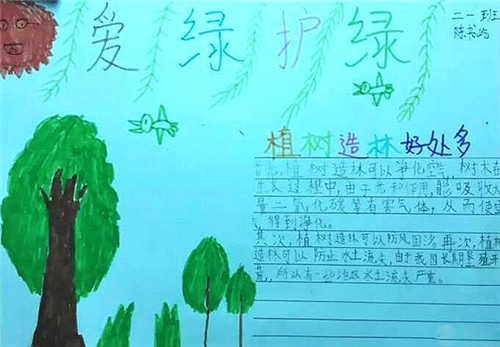 爱绿护绿
二一班
陈书屿
植树造林好处多
首先,植树造林可以净化空气,树木在
生长过程中,由于光和作用,能吸收大
量二氧化碳等有害气体,从而使空
得到净化。
其次,植树造林可以防风固沙,再次,植树
造林可以防止水土流失,由于我国长期垦殖开
荒,所以有一些地区水土流失严重。